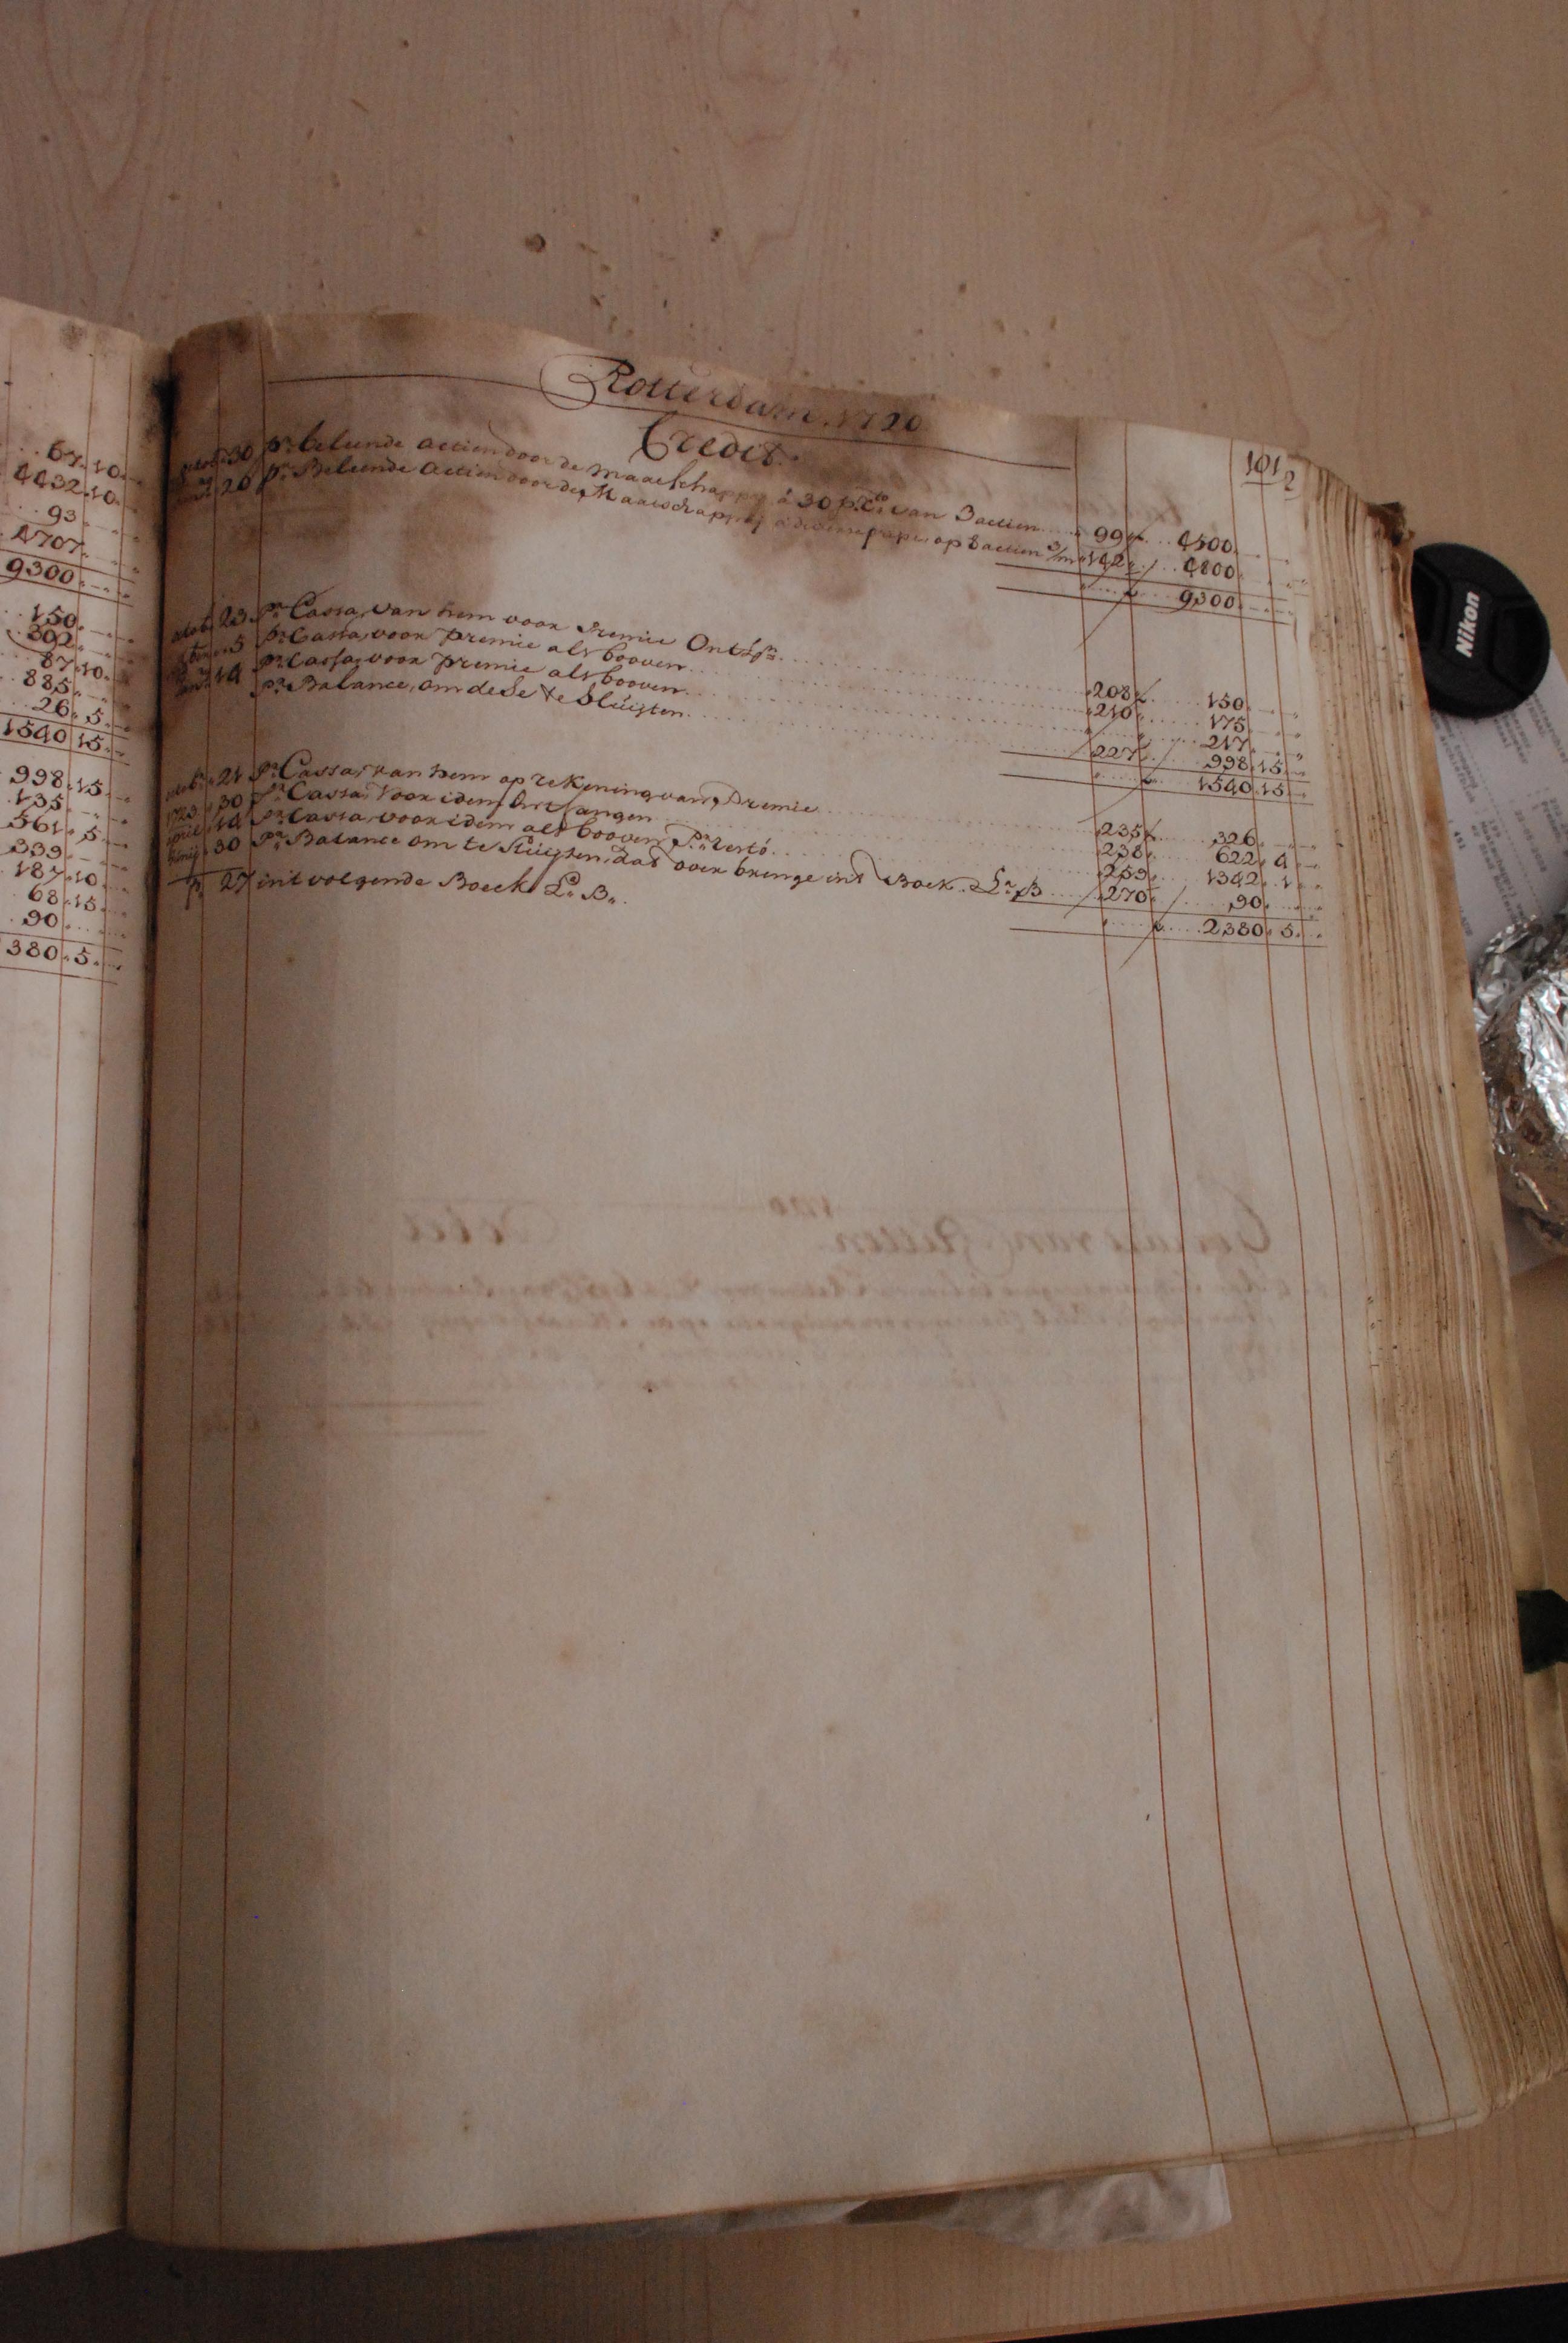 67.10.
4432.10.
93
4707.
9300.
150.
302.
87.10.
885.
26.5.
1540.15.
998.15.
135.
561.5.
339.
187.10.
68.15.
90.
380.5.
Rotterdam. 1720
Credit.
101
30 pr. beleende actien door de maatschappy á 30 p. Cto. van 3 actien 99 f 4500.
20 pr. Beleende actien door de Maatschappy op 8 actien 3/m 142. 4800.
9300.
23 pr. Cassa, van hem voor Premie 208 f 150.
5 pr. Cassa, voor premie als booven 210. 175.
14 pr. Cassa, voor premie als booven 217.
pr. Balance, om dese te Sluijten 227. 998.15.
1540.15.
21 pr. Cassa, van hem op rekening van Premie 235 f 326.
30 pr. Cassa, voor idem Ontfangen 238. 622.4.
april 14 pr. Cassa, voor idem als booven 259. 1342.1.
30 pr. Balance om te Sluijten, dat over brenge int Boek Lr. B 270. 90.
2380.5.
27 int volgende Boeck La. B.
Nikon